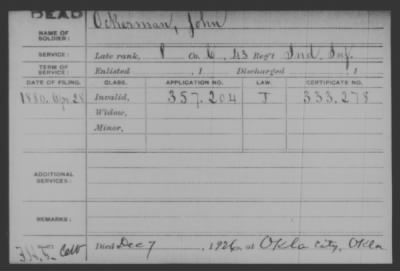 DEAD
NAME OF SOLDIER: Ockerman, John
SERVICE: Late rank, P Co. C, 43 Reg't Ind. Inf.
TERM OF SERVICE: Enlisted , 1 Discharged , 1
DATE OF FILING. CLASS. APPLICATION NO. LAW. CERTIFICATE NO.
1880, Apr 28 Invalid, 357.204 J 333.278
Widow,
Minor,
ADDITIONAL SERVICES:
REMARKS:
Died Dec 7, 1926, at Okla City, Okla